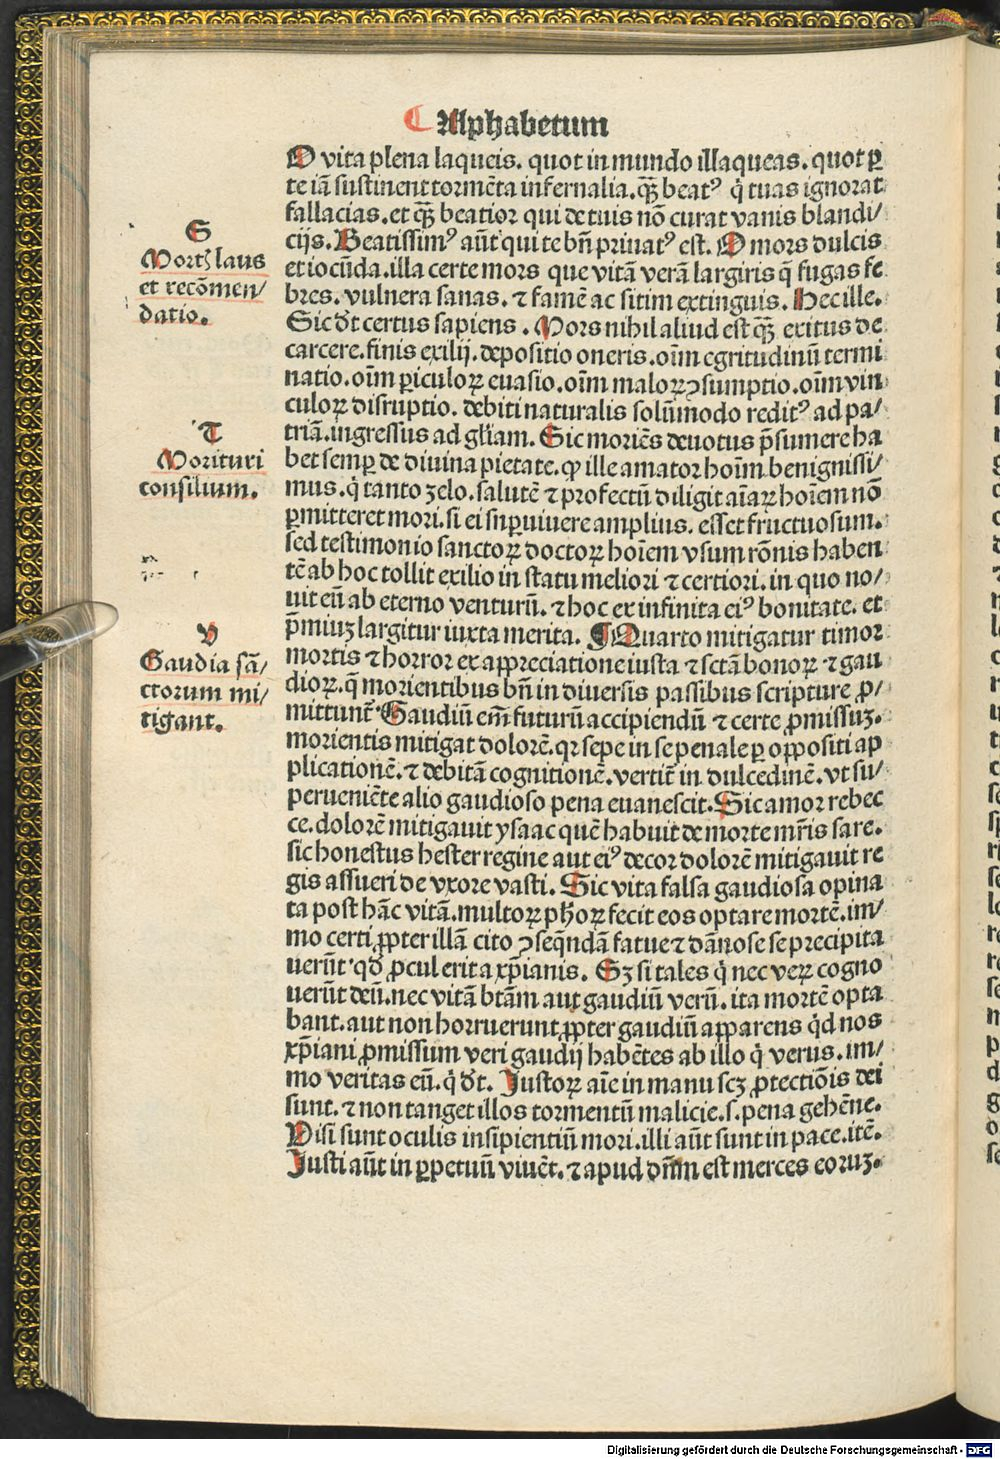 ☾ Alphabetum
O vita plena laqueis. quot in mundo illaqueas. quot ꝑ
te iā sustinent tormēta infernalia. qꝫ̄ beatꝰ q̇ tuas ignorat
fallacias. et qꝫ̄ beatior qui de tuis nō curat vanis blandi/
cijs. Beatissimꝰ aūt qui te bn̄ priuatꝰ est. O mors dulcis
et iocūda. illa certe mors que vitā verā largiris q̄ fugas fe
bres. vulnera sanas. ⁊ famē ac sitim extinguis. Hec ille.
Sic dt̄ certus sapiens. Mors nihil aliud est qꝫ̄ exitus de
carcere. finis exilij. depositio oneris. oīm egritudinū termi
natio. oīm ꝑiculoꝝ euasio. oīm maloꝝ ↄsumptio. oīm vin
culoꝝ disruptio. debiti naturalis solūmodo reditꝰ ad pa/
triā. ingressus ad gl̄iam. Sic moriēs deuotus p̄sumere ha
bet semꝑ de diuina pietate. ꝙ ille amator hoīm benignissi/
mus. q̇ tanto zelo. salutē ⁊ profectū diligit aīaꝝ hoīem nō
ꝑmitteret mori. si ei suꝑuiuere amplius. esset fructuosum.
sed testimonio sanctoꝝ doctoꝝ hoīem vsum rōnis haben
tē ab hoc tollit exilio in statu meliori ⁊ certiori. in quo no/
uit eū ab eterno venturū. ⁊ hoc ex infinita eiꝰ bonitate. et
p̄miuꝫ largitur iuxta merita. ¶ Quarto mitigatur timor
mortis ⁊ horror ex appreciatione iusta ⁊ sctā bonoꝝ ⁊ gau
dioꝝ. q̄ morientibus bn̄ in diuersis passibus scripture ꝓ/
mittunt̄. Gaudiū em̄ futurū accipiendū ⁊ certe ꝓmissuꝫ.
morientis mitigat dolorē. qꝛ sepe in se penale ꝑ oppositi ap
plicationē. ⁊ debitā cognitionē. vertit̄ in dulcedinē. vt su/
perueniēte alio gaudioso pena euanescit. Sic amor rebec
ce. dolorē mitigauit ysaac quē habuit de morte mr̄is sare.
sic honestus hester regine aut eiꝰ decor dolorē mitigauit re
gis assueri de vxore vasti. Sic vita falsa gaudiosa opina
ta post hāc vitā. multoꝝ ph̄oꝝ fecit eos optare mortē. im/
mo certi ꝓpter illā cito ↄseqndā fatue ⁊ dānose se precipita
uerūt. qd̄ ꝓcul erit a xp̄ianis. Sꝫ si tales q̇ nec veꝝ cogno
uerūt deū. nec vitā btā̄m aut gaudiū verū. ita mortē opta
bant. aut non horruerunt ꝓpter gaudiū apparens q̇d nos
xp̄iani ꝓmissum veri gaudij habētes ab illo q̇ verus. im/
mo veritas eū. q̇ dt̄. Justoꝝ aīe in manu scꝫ ꝓtectiōis dei
sunt. ⁊ non tanget illos tormentū malicie. s. pena gehēne.
Visi sunt oculis insipientiū mori. illi aūt sunt in pace. itē.
Justi aūt in ꝑpetuū viuēt. ⁊ apud dn̄m est merces eoruꝫ.
S
Mortꝭ laus
et recōmen/
datio.
T
Morituri
consilium.
V
Gaudia sā/
ctorum mi/
tigant.
Digitalisierung gefördert durch die Deutsche Forschungsgemeinschaft - DFG